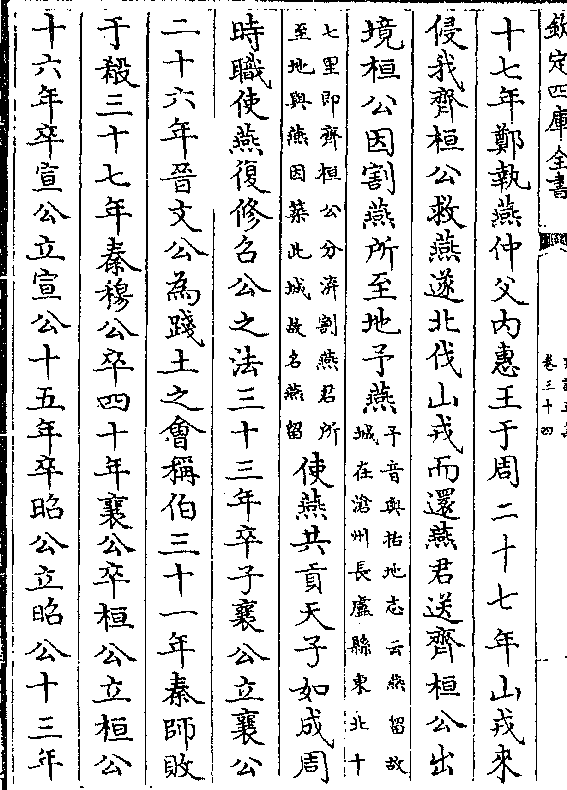 欽定四庫全書
卷三十四
十七年鄭執燕仲父內惠王于周二十七年山戎來
侵我齊桓公救燕遂北伐山戎而還燕君送齊桓公出
境桓公因割燕所至地予燕
予音與括地志云燕留故
城在滄州長盧縣東北十
七里即齊桓公分溝割燕君所
至地與燕因築此城故名燕留
使燕共貢天子如成周
時職使燕復修召公之法三十三年卒子襄公立襄公
二十六年晉文公為踐土之會稱伯三十一年秦師敗
于殽三十七年秦穆公卒四十年襄公卒桓公立桓公
十六年卒宣公立宣公十五年卒昭公立昭公十三年